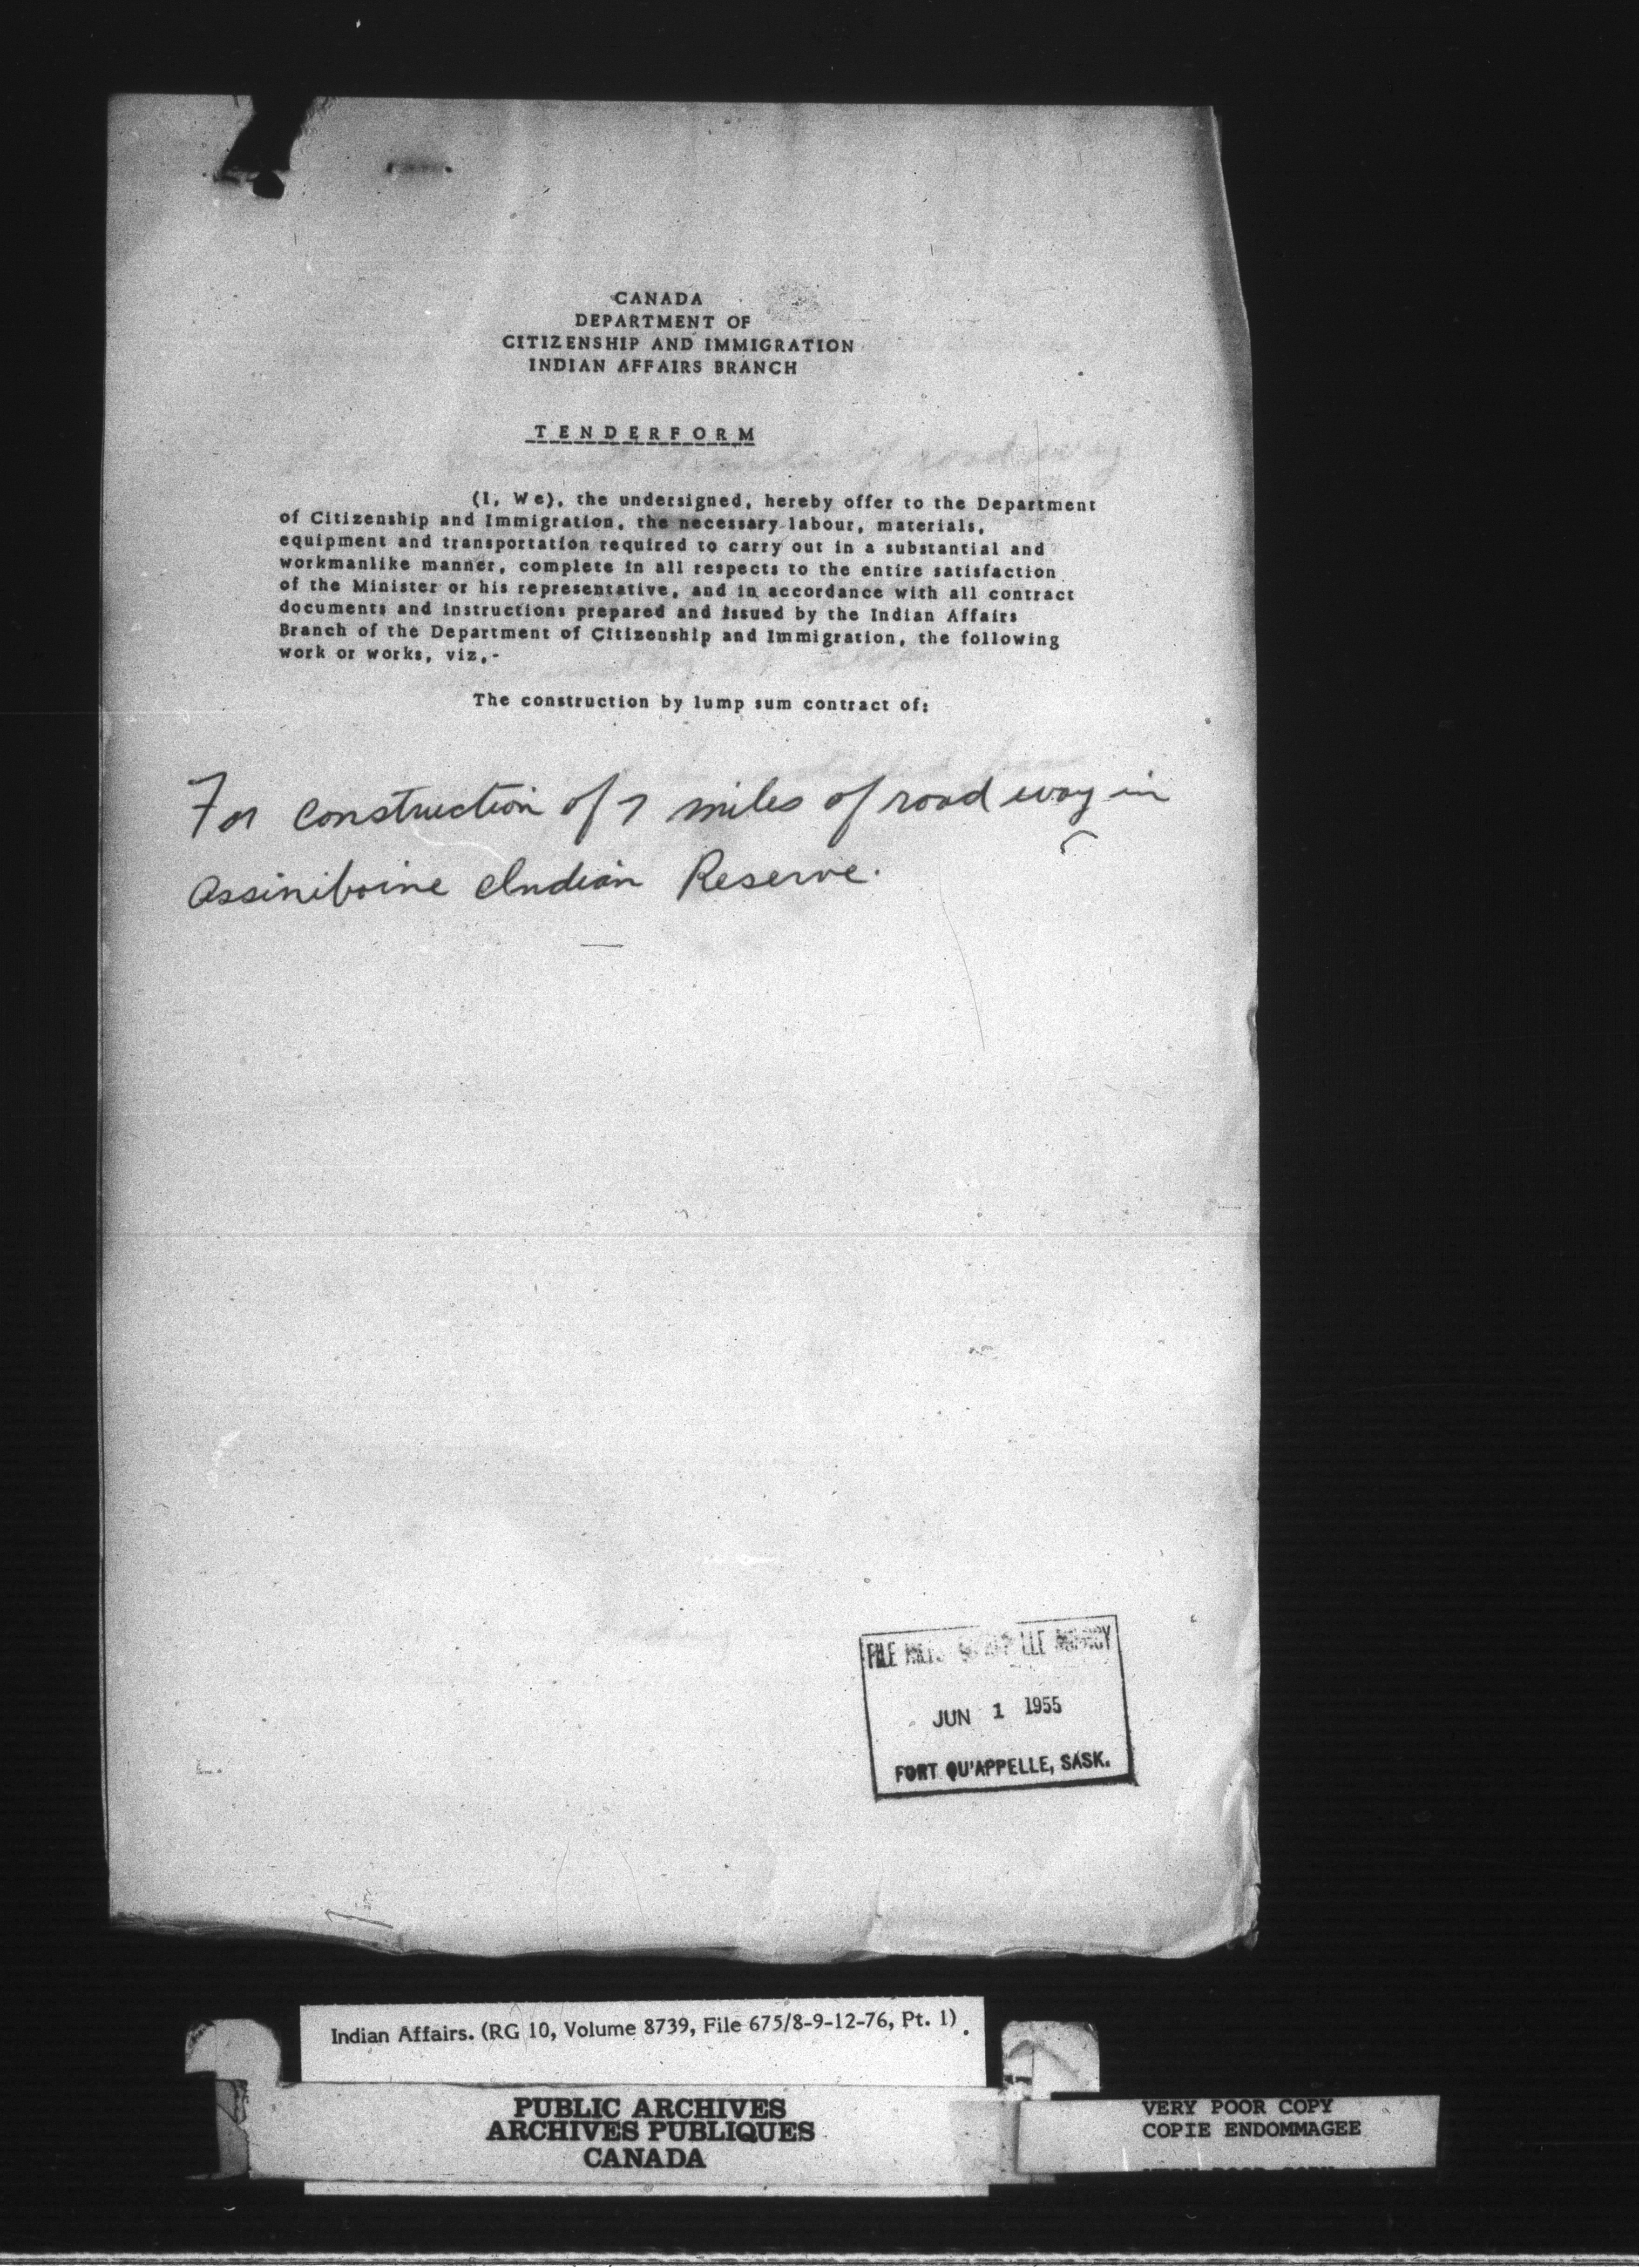 CANADA
DEPARTMENT OF
CITIZENSHIP AND IMMIGRATION
INDIAN AFFAIRS BRANCH
TENDERFORM
(I, We), the undersigned, hereby offer to the Department
of Citizenship and Immigration, the necessary labour, materials,
equipment and transportation required to carry out in a substantial and
workmanlike manner, complete in all respects to the entire satisfaction
of the Minister or his representative, and in accordance with all contract
documents and instructions prepared and issued by the Indian Affairs
Branch of the Department of Citizenship and Immigration, the following
work or works, viz,-
The construction by lump sum contract of:
For construction of 7 miles of road way in
Assiniboine Indian Reserve.
FILE AGENCY
JUN 1 1955
FORT QU'APPELLE, SASK.
Indian Affairs. (RG 10, Volume 8739, File 675/8-9-12-76, Pt. 1)
PUBLIC ARCHIVES
ARCHIVES PUBLIQUES
CANADA
VERY POOR COPY
COPIE ENDOMMAGEE